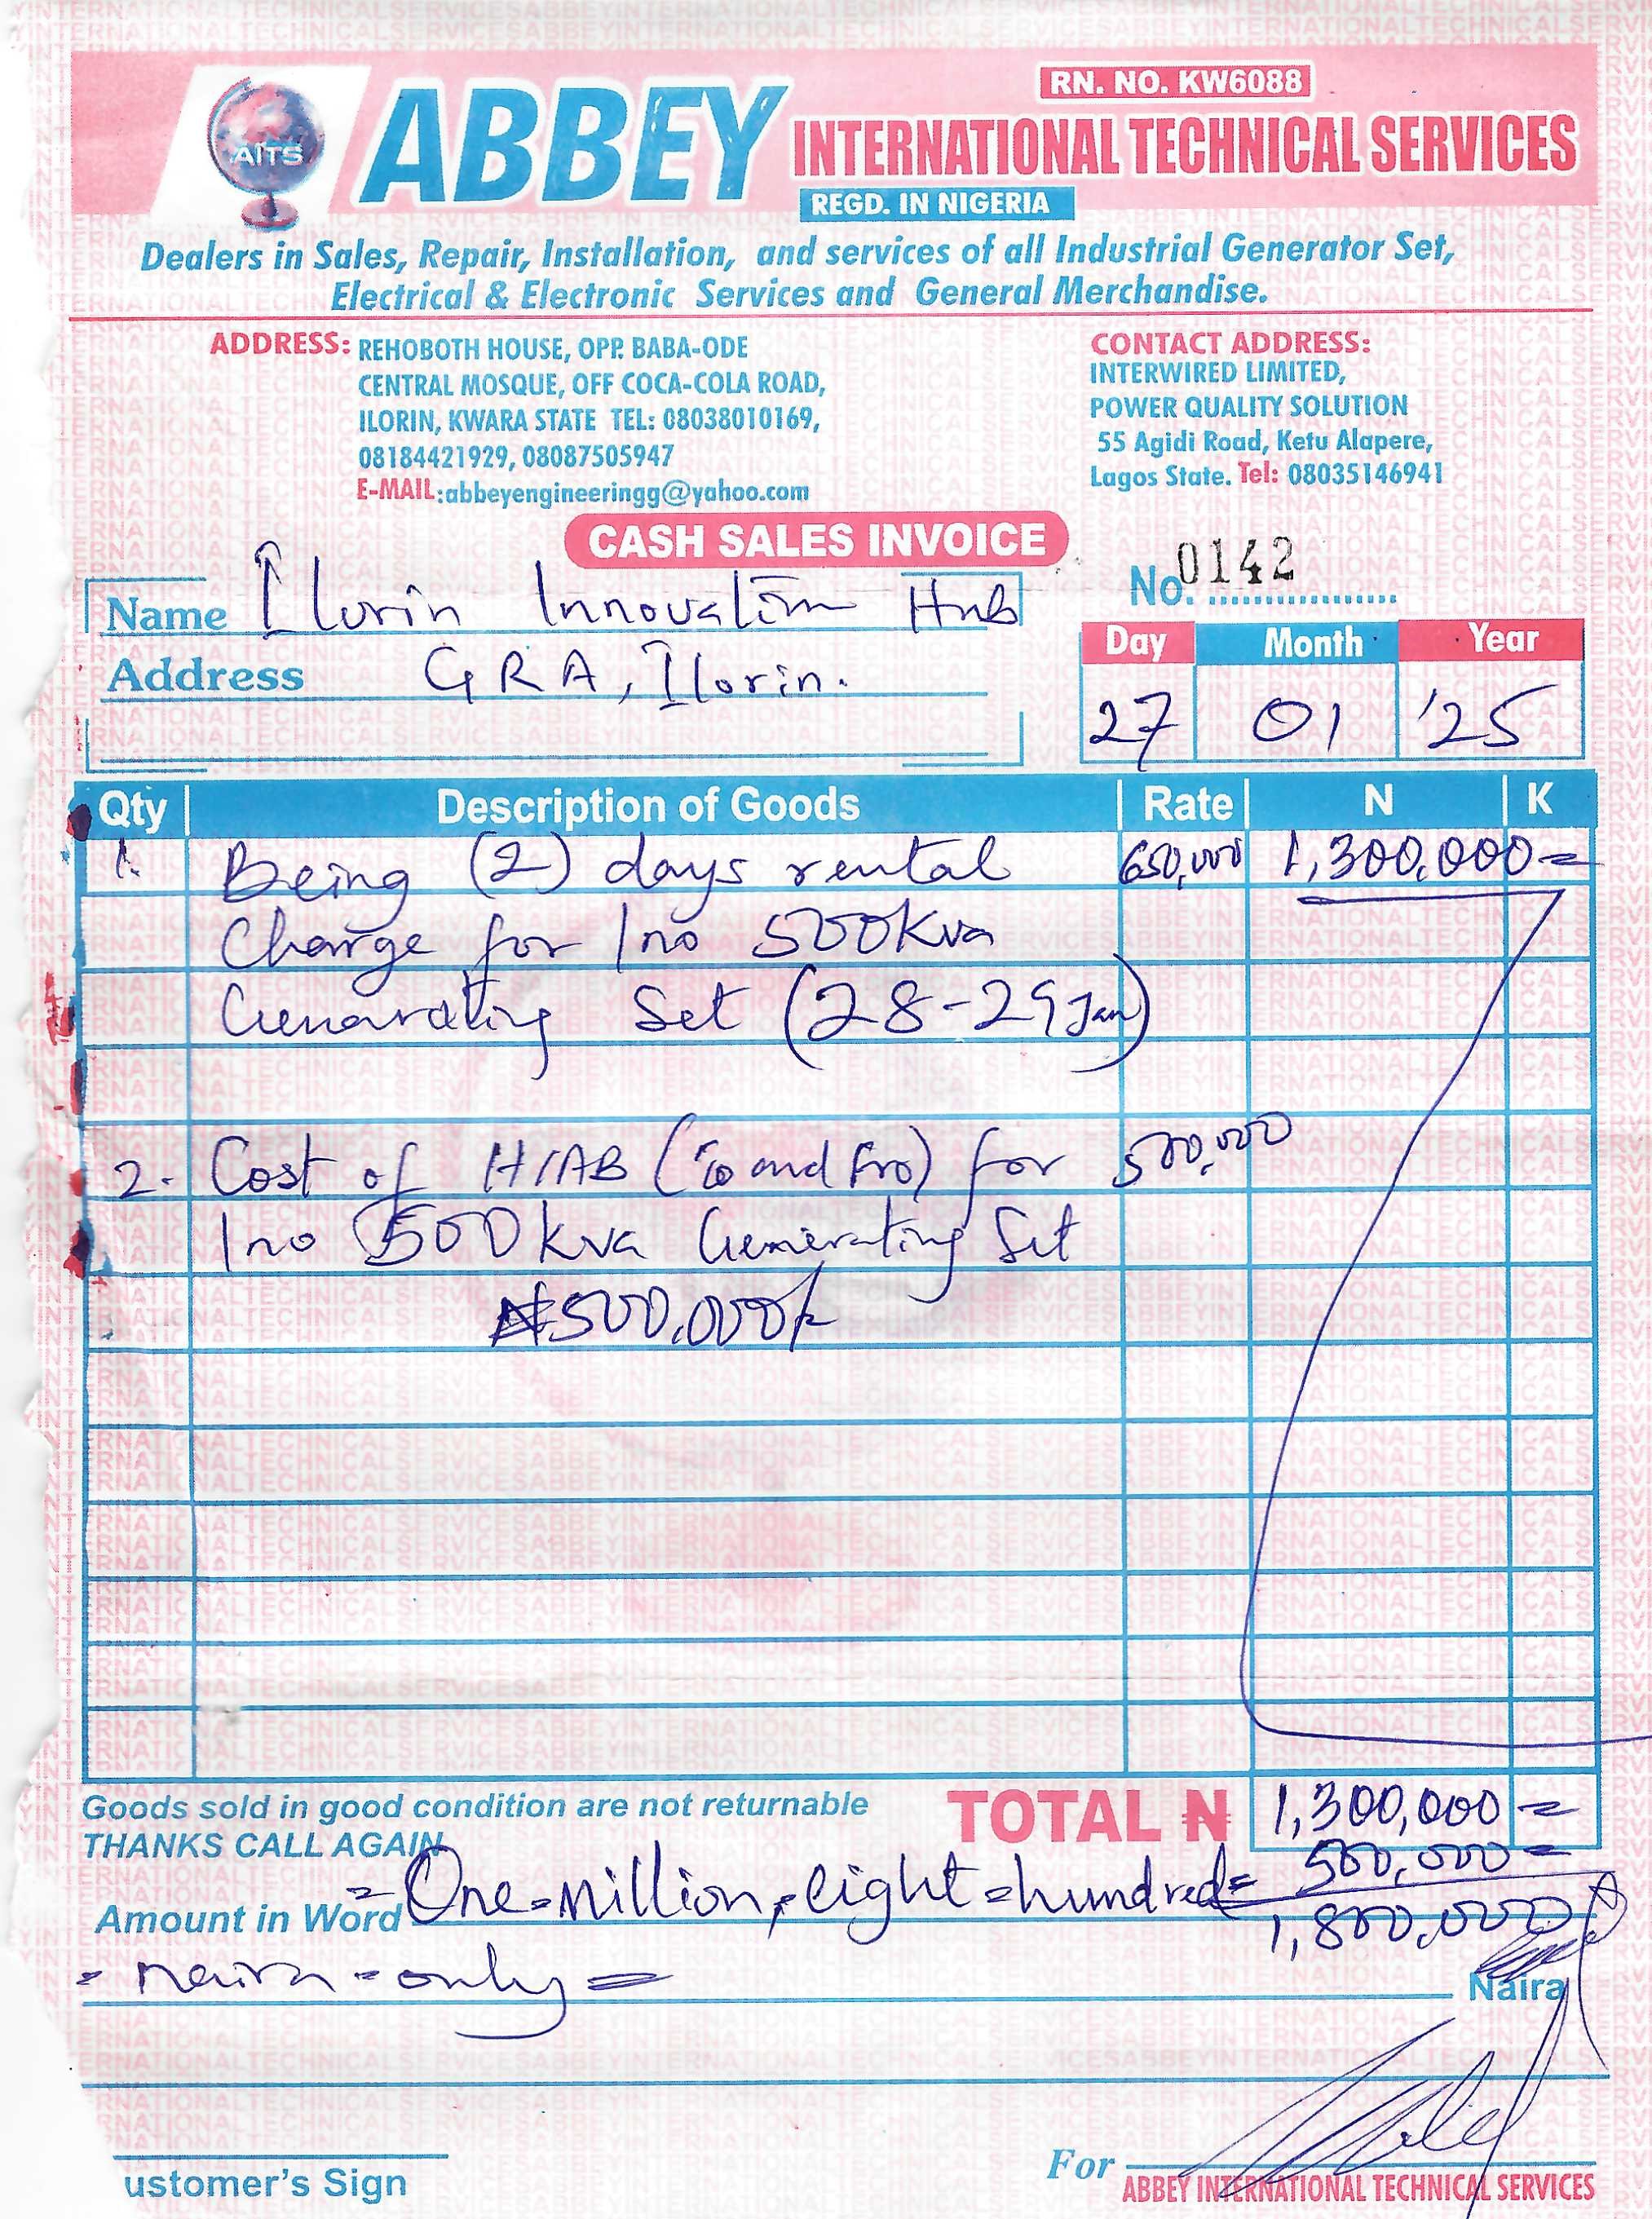 RN. NO. KW6088
AITS
ABBEY INTERNATIONAL TECHNICAL SERVICES
REGD. IN NIGERIA
Dealers in Sales, Repair, Installation, and services of all Industrial Generator Set,
Electrical & Electronic Services and General Merchandise.
ADDRESS: REHOBOTH HOUSE, OPP. BABA-ODE
CENTRAL MOSQUE, OFF COCA-COLA ROAD,
ILORIN, KWARA STATE TEL: 08038010169,
08184421929, 08087505947
E-MAIL:abbeyengineeringg@yahoo.com
CONTACT ADDRESS:
INTERWIRED LIMITED,
POWER QUALITY SOLUTION
55 Agidi Road, Ketu Alapere,
Lagos State. Tel: 08035146941
CASH SALES INVOICE
No. 0142
Name Ilorin Innovation Hub
Address GRA, Ilorin.
Day Month Year
27 01 '25
Qty Description of Goods Rate N K
1. Being (2) days rental 650,000 1,300,000=
Charge for 1no 500Kva
Generating Set (28-29 Jan)
2. Cost of HIAB (to and fro) for 500,000
1no 500kva Generating Set
₦500,000k
Goods sold in good condition are not returnable
THANKS CALL AGAIN
TOTAL ₦ 1,300,000 =
500,000 =
1,800,000
Amount in Word = One=million, eight=hundred=
= naira=only=
Naira
ustomer's Sign
For
ABBEY INTERNATIONAL TECHNICAL SERVICES